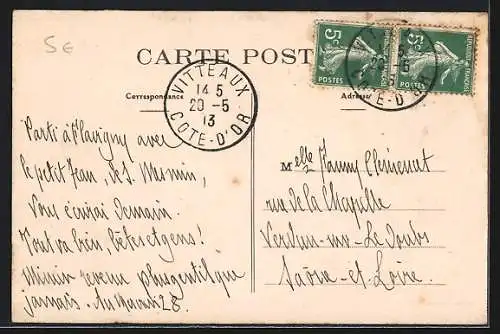 5€
CARTE POST
Correspondance
Adresse
VITTEAUX
14 5
20 -5
13
COTE-D'OR
5c
POSTES
5c
POSTES
REPUBLIQUE FRANÇAISE
Parti à Flavigny avec
le petit Jean, de S.
Vous écrirai demain.
Tout va bien, bêtes et gens!
revenu plus gentil que
jamais.
Melle Fanny Clémencet
rue de la Chapelle
Verdun-sur-Le Doubs
Saône-et-Loire.